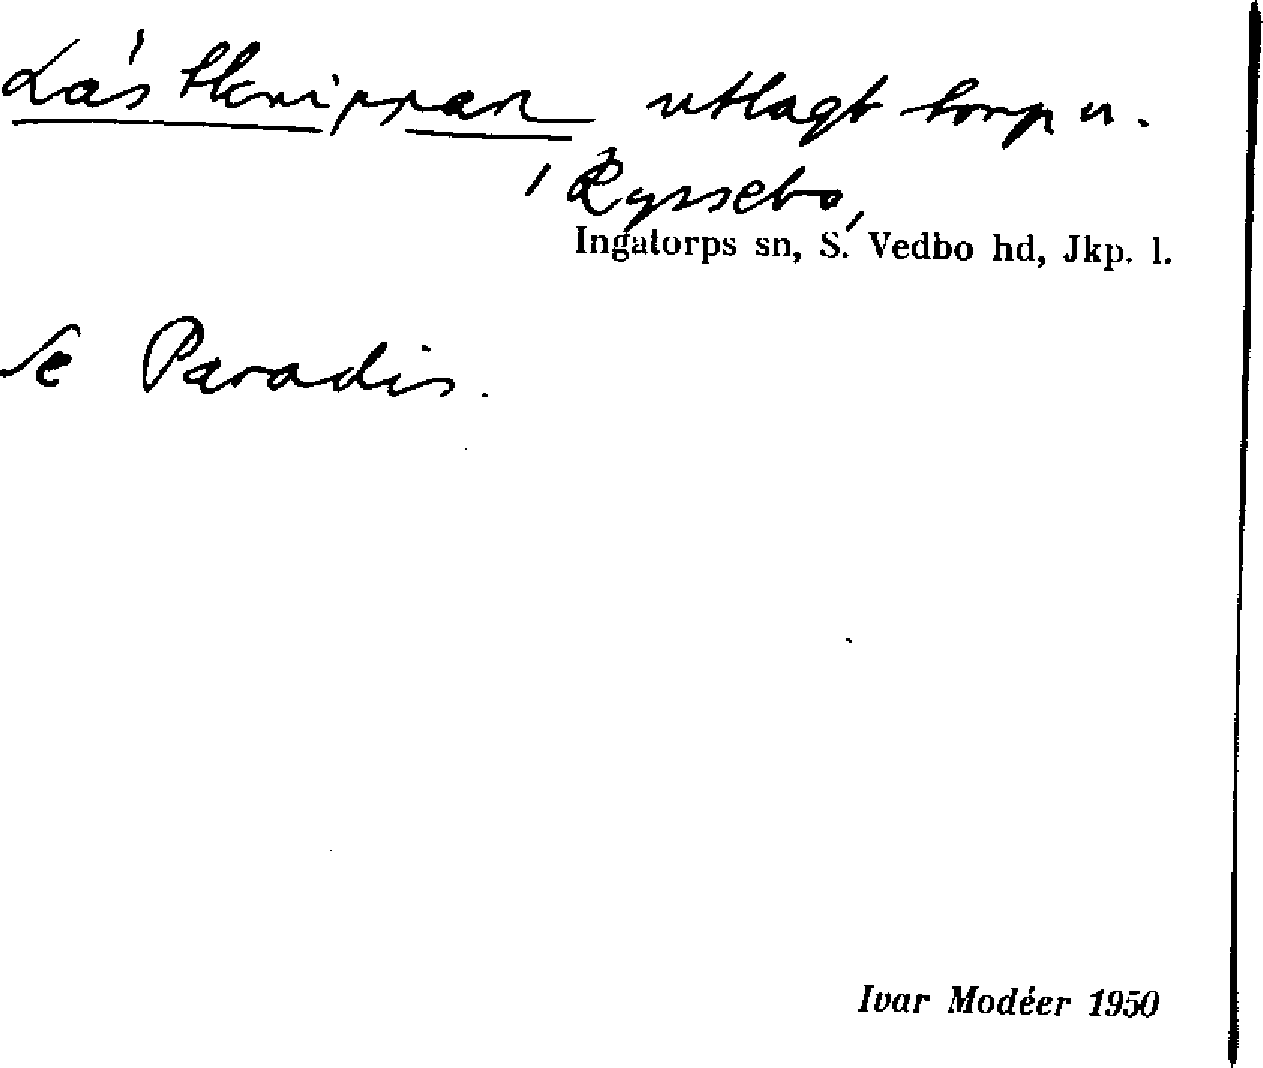 utlagt torp u.
Ryssebo,
Ingatorps sn, S. Vedbo hd, Jkp. l.
Se Paradis.
Ivar Modéer 1950